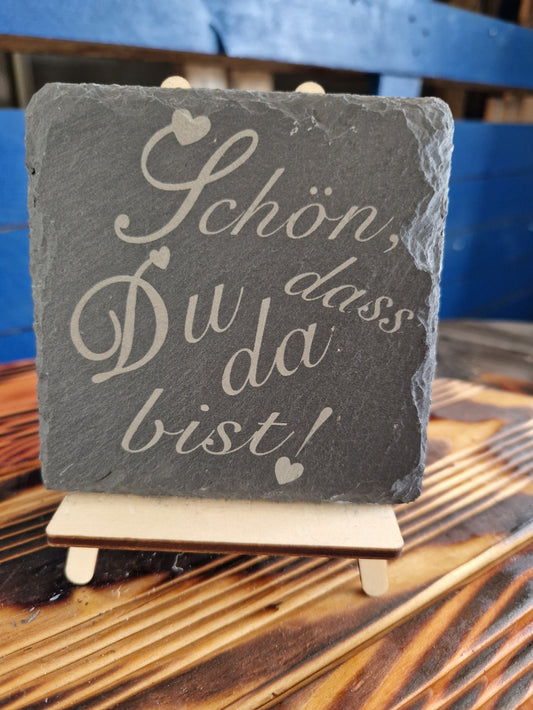 Schön,
dass
Du da
bist!